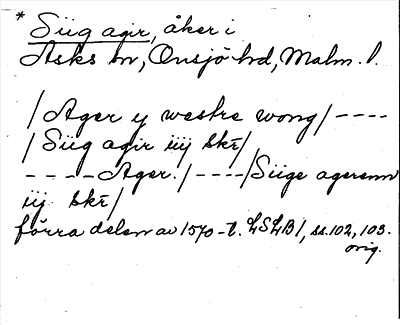 * Siig agir, åker i
Asks sn, Onsjö hd, Malm. l.
/Ager y westre wong/ ----
/Siig agir iiij skr/
----Ager./----/Siige agerenn
iij skr/
förra delen av 1570-t. LSLB 1, ss. 102, 103.
orig.